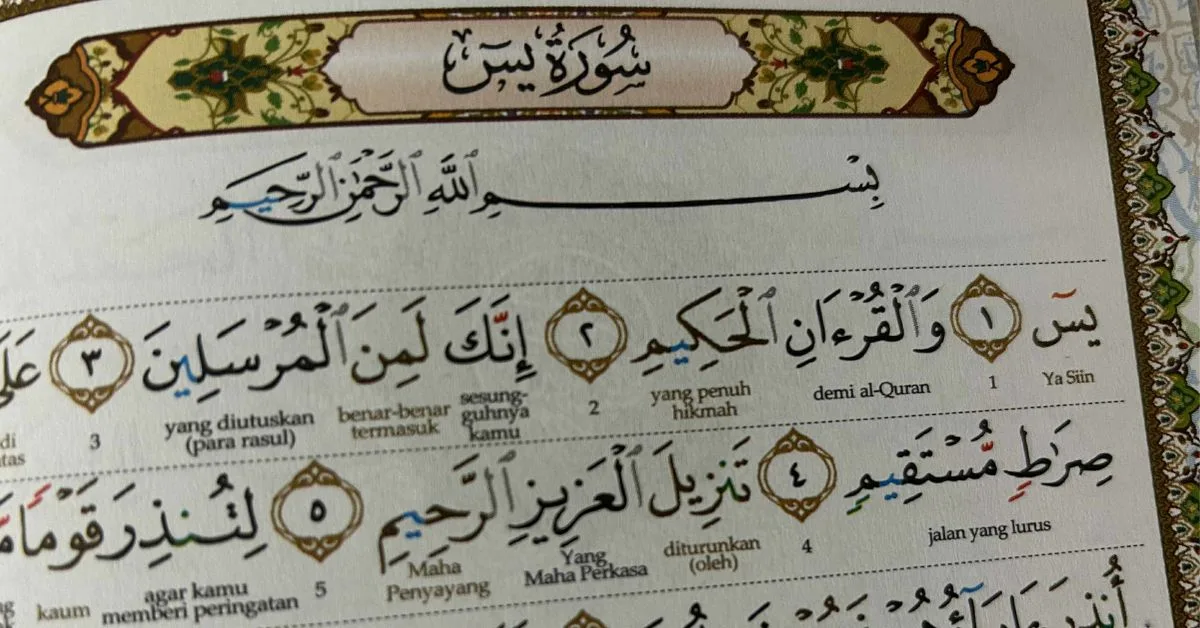 سُورَةُ يسٓ
بِسْمِ ٱللَّهِ ٱلرَّحْمَٰنِ ٱلرَّحِيمِ
يسٓ ١ وَٱلْقُرْءَانِ ٱلْحَكِيمِ ٢ إِنَّكَ لَمِنَ ٱلْمُرْسَلِينَ ٣
Ya Siin 1 demi al-Quran yang penuh hikmah 2 sesung-guhnya kamu benar-benar termasuk yang diutuskan (para rasul) 3 di
صِرَٰطٍ مُّسْتَقِيمٍ ٤ تَنزِيلَ ٱلْعَزِيزِ ٱلرَّحِيمِ ٥ لِتُنذِرَ قَوْمًا
jalan yang lurus 4 diturunkan (oleh) Yang Maha Perkasa Maha Penyayang 5 agar kamu memberi peringatan kaum
أُنذِرَ